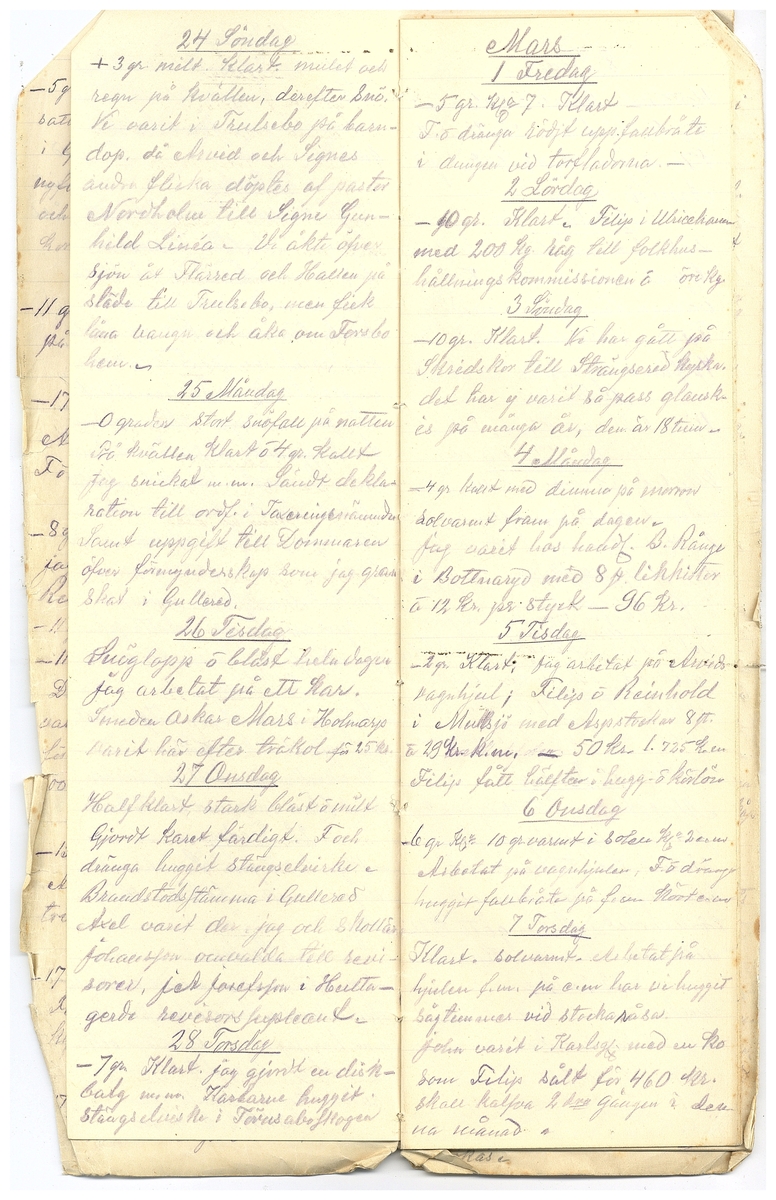 24 Söndag
+ 3 gr. milt. Klart mulet och
regn på kvällen, derefter snö.
Vi varit i Trulsebo på barn-
dop. då Arvid och Signes
andra flicka döptes af pastor
Nordholm till Signe Gun-
hild Linéa. Vi åkte öfver
sjön åt Flässed och Hallen på
släde till Trulsebo, men fick
låna vangn och åka om Forsbo
hem.
25 Måndag
-0 graden stort snöfall på natten
På kvällen Klart ö 4 gr. Kallt
jag snickat m.m. Sändt dekla-
ration till ordf. i Taxeringsnämnden
Samt uppgift till Dommaren
öfver förmynderskap som jag gran
skat i Gullered.
26 Tisdag
Snöglopp ö blåst hela dagen
Jag arbetat på ett kar.
Smeden Oskar Mars i Holmarp
varit här efter träkol för 25 kr.
27 Onsdag
Halfklart, stark blåst ö milt
Gjordt karet färdigt. F och
dränga huggit stängselvirke
Brandstodsstämma i Gullered
Axel varit der. jag och
Johansson omvalda till revi-
sorer, Josefsson i Hutta-
gerde revisorssupleant.
28 Torsdag
-7 gr. Klart. jag gjordt en disk-
balg m.m. Karlarne huggit
stängselvirke i Törnsaboskogen
Mars
1 Fredag
-5 gr. Kl. 7. Klart
F. ö dränga rödjt upp fallbråte
i dungen vid torfladorna. -
2 Lördag
-10 gr. Klart. Filip i Ulricehamn
med 200 kg. råg till folkhus-
hållningskommissionen ä öre kg.
3 Söndag
-10 gr. Klart. Vi har gått på
Skridskor till Strängsered kyrka.
det har ej varit så pass glansk-
is på många år, den är 18 tum
4 Måndag
-4 gr kallt med dimma på morron
solvarmt fram på dagen.
Jag varit hos handl. B. Rånge
i Bottnaryd med 8 st. likkistor
ä 12 kr. pr. styck - 96 kr.
5 Tisdag
-2 gr. Klart; Jag arbetat på Arvids
vagnhjul; Filip ö Reinhold
i Mullsjö med Aspstockar 8 st.
ä 29 kr. k.m. - 50 kr. 1.725 k.m
Filip fått hälften i hugg- ö körlön
6 Onsdag
-6 gr 10 gr varmt i solen
Arbetat på vagnhjulen; F. ö dränga
huggit fallbråte på f.m. Kört e.m
7 Torsdag
Klart. solvarmt. Arbetat på
hjulen f.m. på e.m har vi huggit
sågtimmer vid stockaråsa
John varit i med en ko
som Filip sålt för 460 kr.
skall kalfva 2 dra gången i den-
na månad.